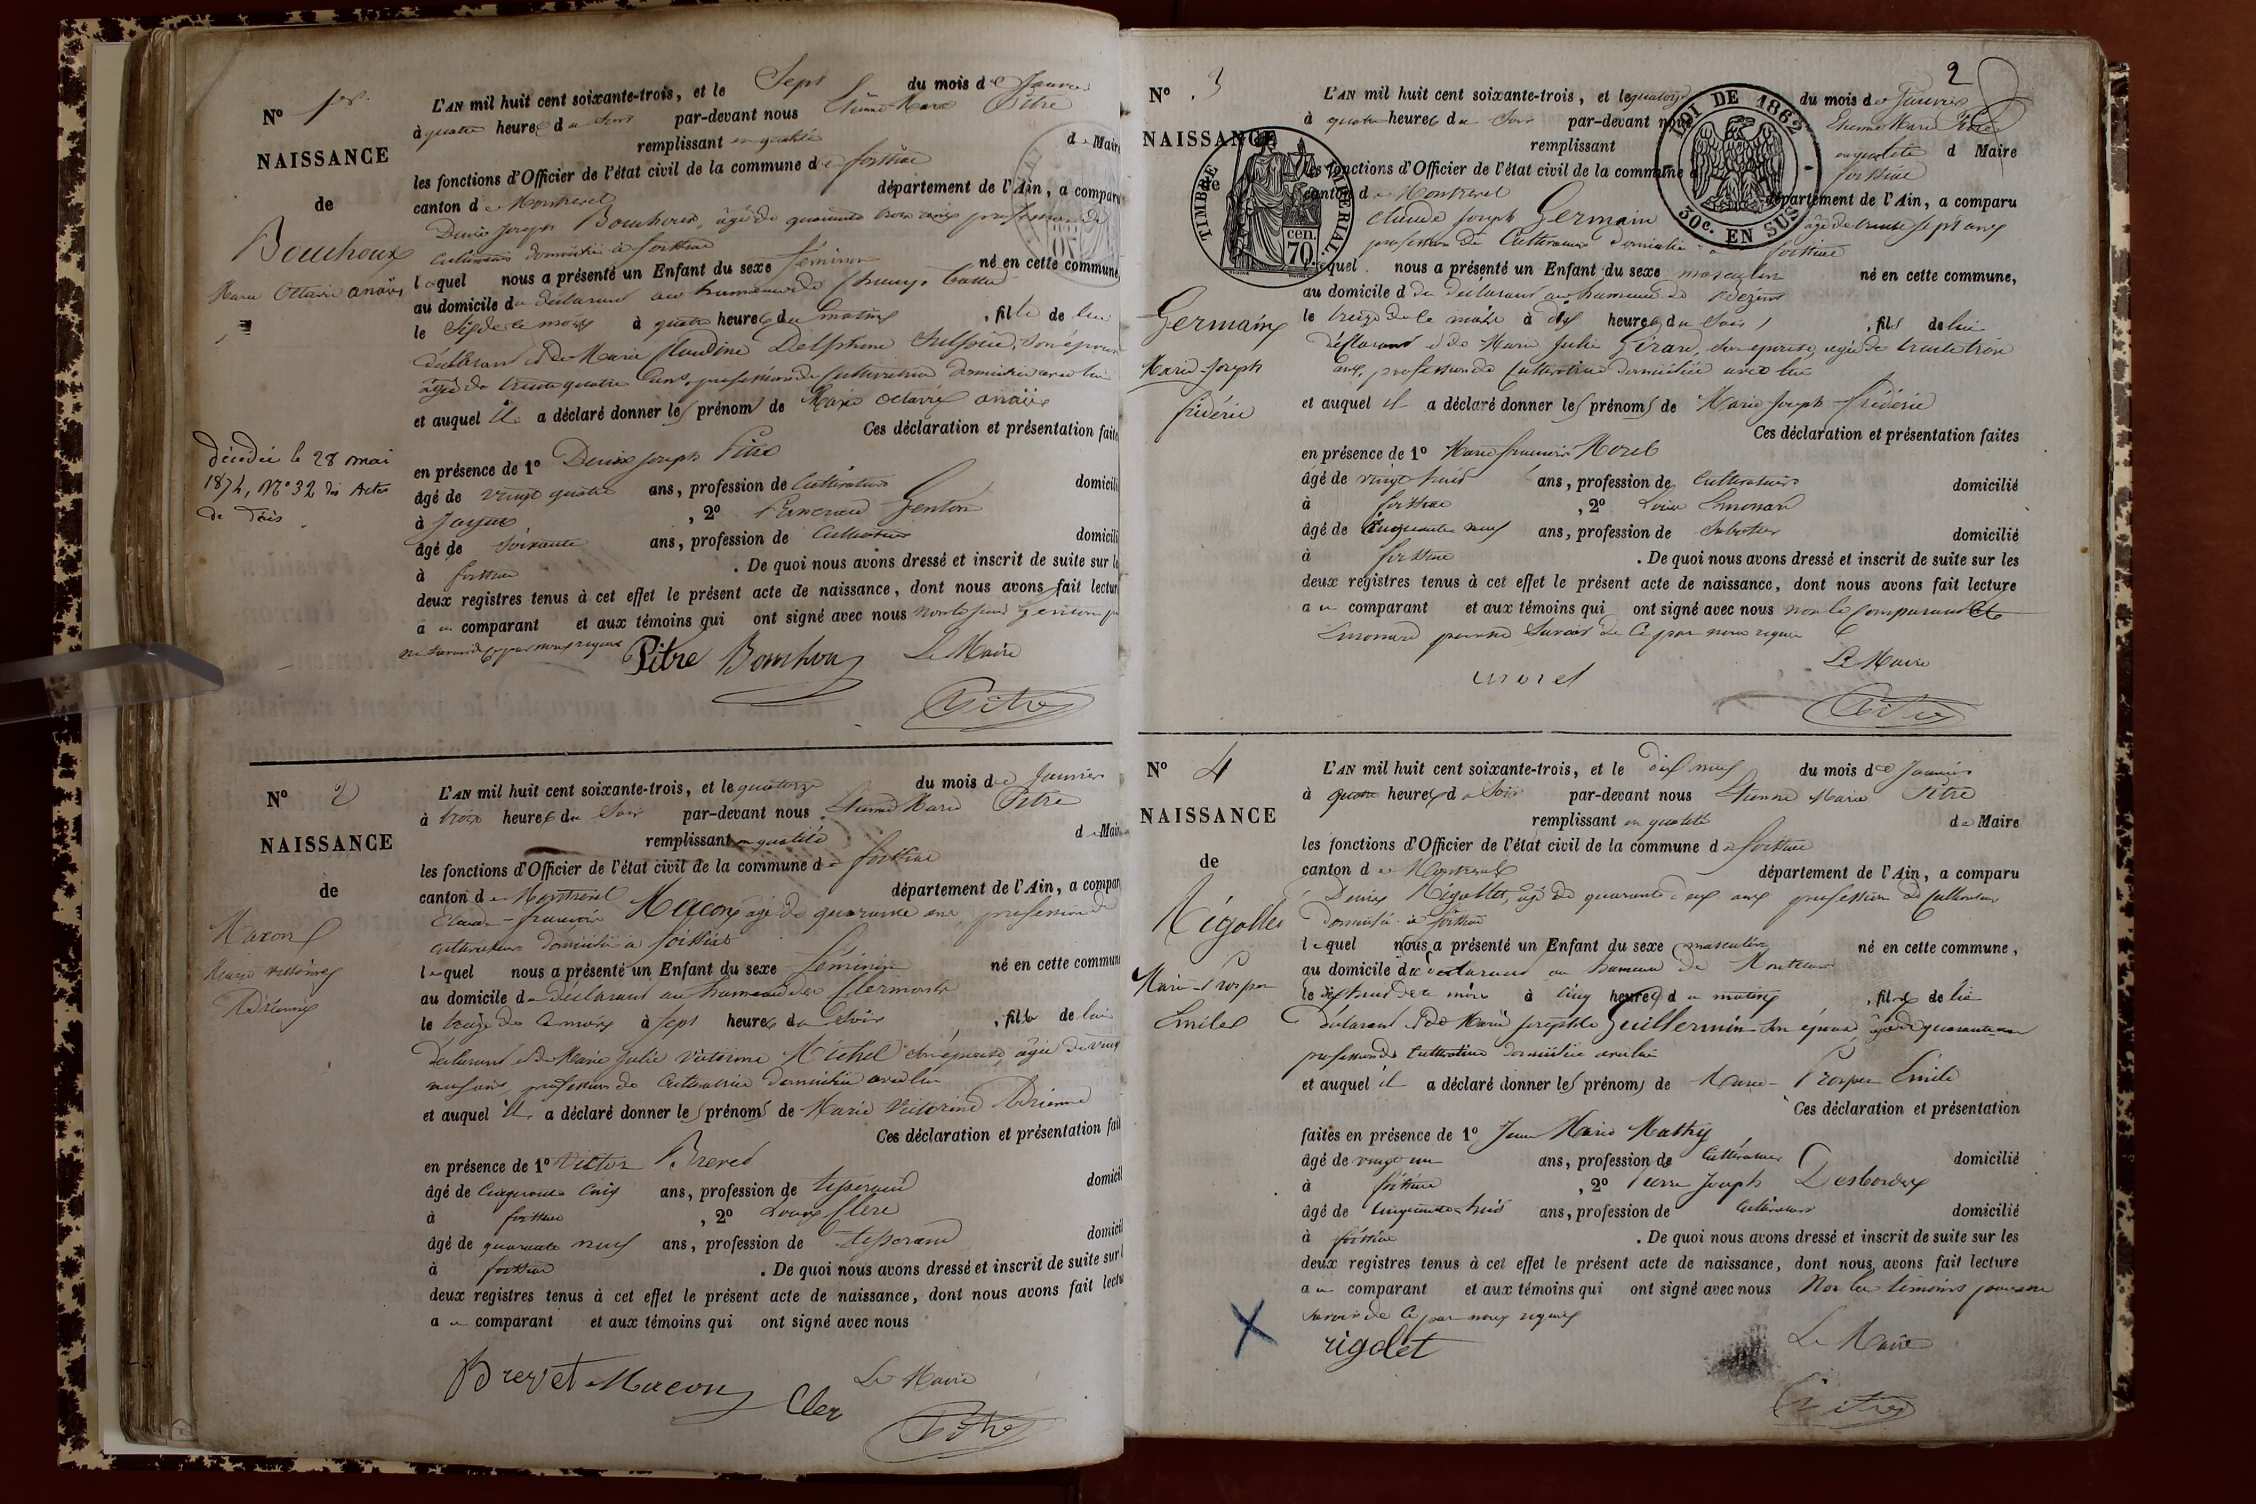 N° 1er
NAISSANCE
de
Bouchoux
Marie Octavie anaïs
décédée le 28 mai
1874, N° 32 des Actes
de Décès
L'AN mil huit cent soixante-trois, et le Sept du mois de Janvier
à quatre heures du Soir par-devant nous Etienne Marie Pitre
remplissant en qualité de Maire
les fonctions d'Officier de l'état civil de la commune de foissiat
canton de Montrevel département de l'Ain, a comparu
Denis Joseph Bouchoux, âgé de quarante trois ans profession de
cultivateur domicilié à foissiat
lequel nous a présenté un Enfant du sexe féminin né en cette commune
au domicile du déclarant au hameau de
le Six de ce mois à quatre heures du matin, fille de lui
déclarant et de Marie Claudine Delphine son épouse
âgée de trente quatre ans, profession de Cultivatrice domiciliée avec lui
et auquel il a déclaré donner les prénoms de Marie Octavie anaïs
Ces déclaration et présentation faites
en présence de 1° Denis Joseph Pitre
âgé de vingt quatre ans, profession de Cultivateur domicilié
à Jayat, 2° Genton
âgé de Soixante ans, profession de Cultivateur domicilié
à foissiat. De quoi nous avons dressé et inscrit de suite sur les
deux registres tenus à cet effet le présent acte de naissance, dont nous avons fait lecture
au comparant et aux témoins qui ont signé avec nous non le Genton
ne Savoir de ce par nous requis
Pitre Bouchoux Le Maire
Pitre
N° 2
NAISSANCE
de
Macon
Marie victorine
Adrienne
L'AN mil huit cent soixante-trois, et le quatorze du mois de Janvier
à trois heures du Soir par-devant nous Etienne Marie Pitre
remplissant en qualité de Maire
les fonctions d'Officier de l'état civil de la commune de foissiat
canton de Montrevel département de l'Ain, a comparu
Claude-françois Macon âgé de quarante ans, profession de
cultivateur domicilié à foissiat
lequel nous a présenté un Enfant du sexe féminin né en cette commune
au domicile du déclarant au hameau des Clermonts
le treize de ce mois à sept heures du Soir, fille de lui
déclarant et de Marie Julie victorine Michel son épouse, âgée de vingt
neuf ans, profession de Cultivatrice domiciliée avec lui
et auquel il a déclaré donner les prénoms de Marie Victorine Adrienne
Ces déclaration et présentation faites
en présence de 1° Victor Brevet
âgé de Cinquante Cinq ans, profession de tisserand domicilié
à foissiat, 2° Louis Clerc
âgé de quarante neuf ans, profession de tisserand domicilié
à foissiat. De quoi nous avons dressé et inscrit de suite sur les
deux registres tenus à cet effet le présent acte de naissance, dont nous avons fait lecture
au comparant et aux témoins qui ont signé avec nous
Brevet Macon Cler Le Maire
Pitre
2
N° 3
NAISSANCE
de
Germain
Marie-Joseph
frédéric
TIMBRE IMPÉRIAL
70 cen.
LOI DE 1862
30c. EN SUS
L'AN mil huit cent soixante-trois, et le quatorze du mois de Janvier
à quatre heures du Soir par-devant nous Etienne Marie Pitre
remplissant en qualité d Maire
les fonctions d'Officier de l'état civil de la commune d foissiat
canton de Montrevel département de l'Ain, a comparu
Claude Joseph Germain âgé de trente sept ans
profession de Cultivateur domicilié à foissiat
lequel nous a présenté un Enfant du sexe masculin né en cette commune,
au domicile d du déclarant au hameau de
le treize de ce mois à dix heures du Soir, fils de lui
déclarant et de Marie Julie Girard, son épouse, âgée de trente trois
ans, profession de Cultivatrice domiciliée avec lui
et auquel il a déclaré donner les prénoms de Marie Joseph-frédéric
Ces déclaration et présentation faites
en présence de 1° Marie françois Morel
âgé de vingt huit ans, profession de Cultivateur domicilié
à foissiat, 2° Louis Emonard
âgé de Cinquante neuf ans, profession de Sabotier domicilié
à foissiat. De quoi nous avons dressé et inscrit de suite sur les
deux registres tenus à cet effet le présent acte de naissance, dont nous avons fait lecture
au comparant et aux témoins qui ont signé avec nous non le Comparant et
Emonard pour ne Savoir de Ce par nous requis
Le Maire
morel
Pitre
N° 4
NAISSANCE
de
Rigollet
Marie-Prosper
Emile
L'AN mil huit cent soixante-trois, et le dix neuf du mois de Janvier
à quatre heures du Soir par-devant nous Etienne Marie Pitre
remplissant en qualité de Maire
les fonctions d'Officier de l'état civil de la commune de foissiat
canton de Montrevel département de l'Ain, a comparu
Denis Rigollet, âgé de quarante deux ans profession de Cultivateur
domicilié à foissiat
lequel nous a présenté un Enfant du sexe masculin né en cette commune,
au domicile du déclarant au hameau de
le dix huit de ce mois à cinq heures du matin, fils de lui
déclarant et de Marie Josephte Guillermin son épouse, âgée de quarante ans
profession de Cultivatrice domiciliée avec lui
et auquel il a déclaré donner les prénoms de Marie-Prosper Emile
Ces déclaration et présentation
faites en présence de 1° Jean Marie Mathy
âgé de vingt un ans, profession de Cultivateur domicilié
à foissiat, 2° Pierre Joseph Desbordes
âgé de Cinquante huit ans, profession de Cultivateur domicilié
à foissiat. De quoi nous avons dressé et inscrit de suite sur les
deux registres tenus à cet effet le présent acte de naissance, dont nous avons fait lecture
au comparant et aux témoins qui ont signé avec nous Non les témoins pour ne
Savoir de Ce par nous requis
rigolet Le Maire
Pitre